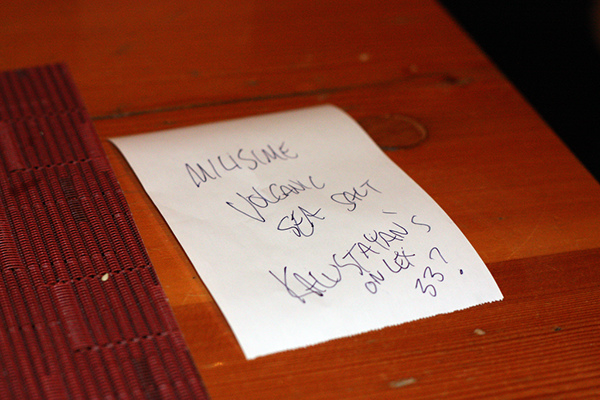 MILISIME
VOLCANIC
SEA SALT
KALUSTAYAN'S
ON LEX
33?